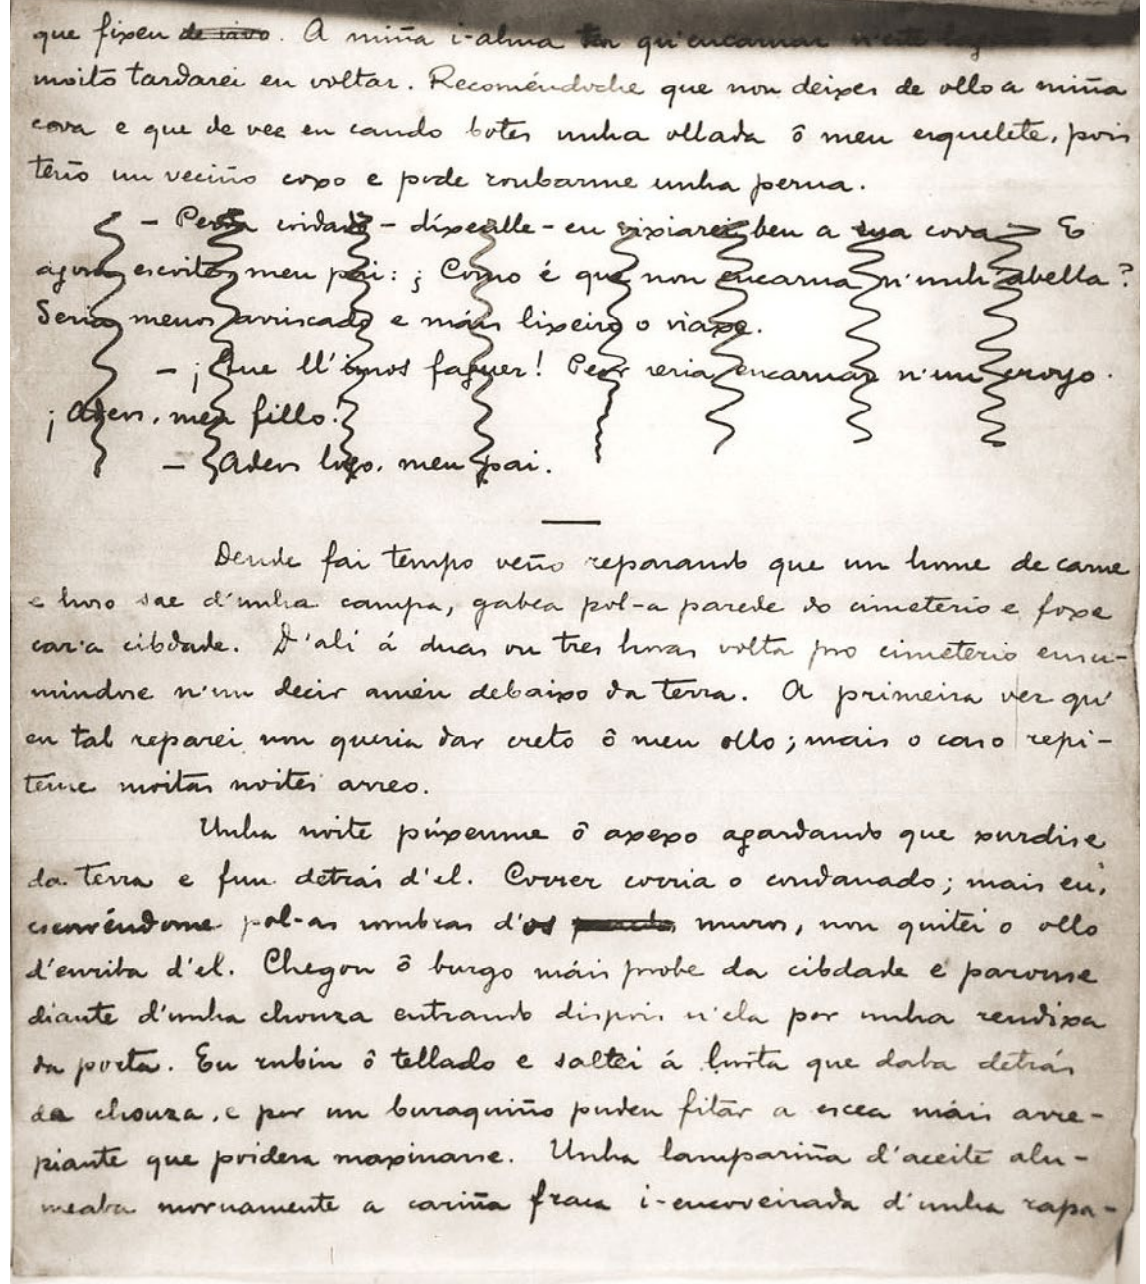 que fixen de vivo. A miña i-alma ten qu'encarnar n'este e
moito tardarei en voltar. Recoméndoche que non deixes de ollo a miña
cova e que de vez en cando botes unha ollada ô meu esquelete, pois
teño un veciño coxo e pode roubarme unha perna.
– Perda coidado – díxenlle – eu vixiarei ben a sua cova – E
agora escoite, meu pai: ¿Como é que non encarna n'unh'abella?
Seria menos arriscado e máis lixeiro o viaxe.
– ¡Que ll'imos faguer! Peor seria encarnar n'un croyo.
¡Adeus, meu fillo!
– Adeus logo, meu pai.
Dende fai tempo veño reparando que un home de carne
e hoso sae d'unha campa, gabea pol-a parede do cimeterio e foxe
car'a cibdade. D'alí á duas ou tres horas volta pro cimeterio ensu-
mindose n'un decir amén debaixo da terra. A primeira vez qu'
eu tal reparei non queria dar creto ô meu ollo; mais o caso repi-
teuse moitas noites arreo.
Unha noite púxenme ô axexo agardando que xurdise
da terra e fun detrás d'el. Correr corria o condanado; mais eu,
escorréndome pol-as sombras d'os muros, non quitei o ollo
d'enriba d'el. Chegou ô burgo máis probe da cibdade e parouse
diante d'unha chouza entrando dispois n'ela por unha rendixa
da porta. Eu rubin ô tellado e saltei á horta que daba detrás
da chouza, e por un buraquiño puden fitar a escea máis arre-
piante que poidera maxinarse. Unha lampariña d'aceite alu-
meaba mornamente a cariña fraca i-encoveirada d'unha rapa-